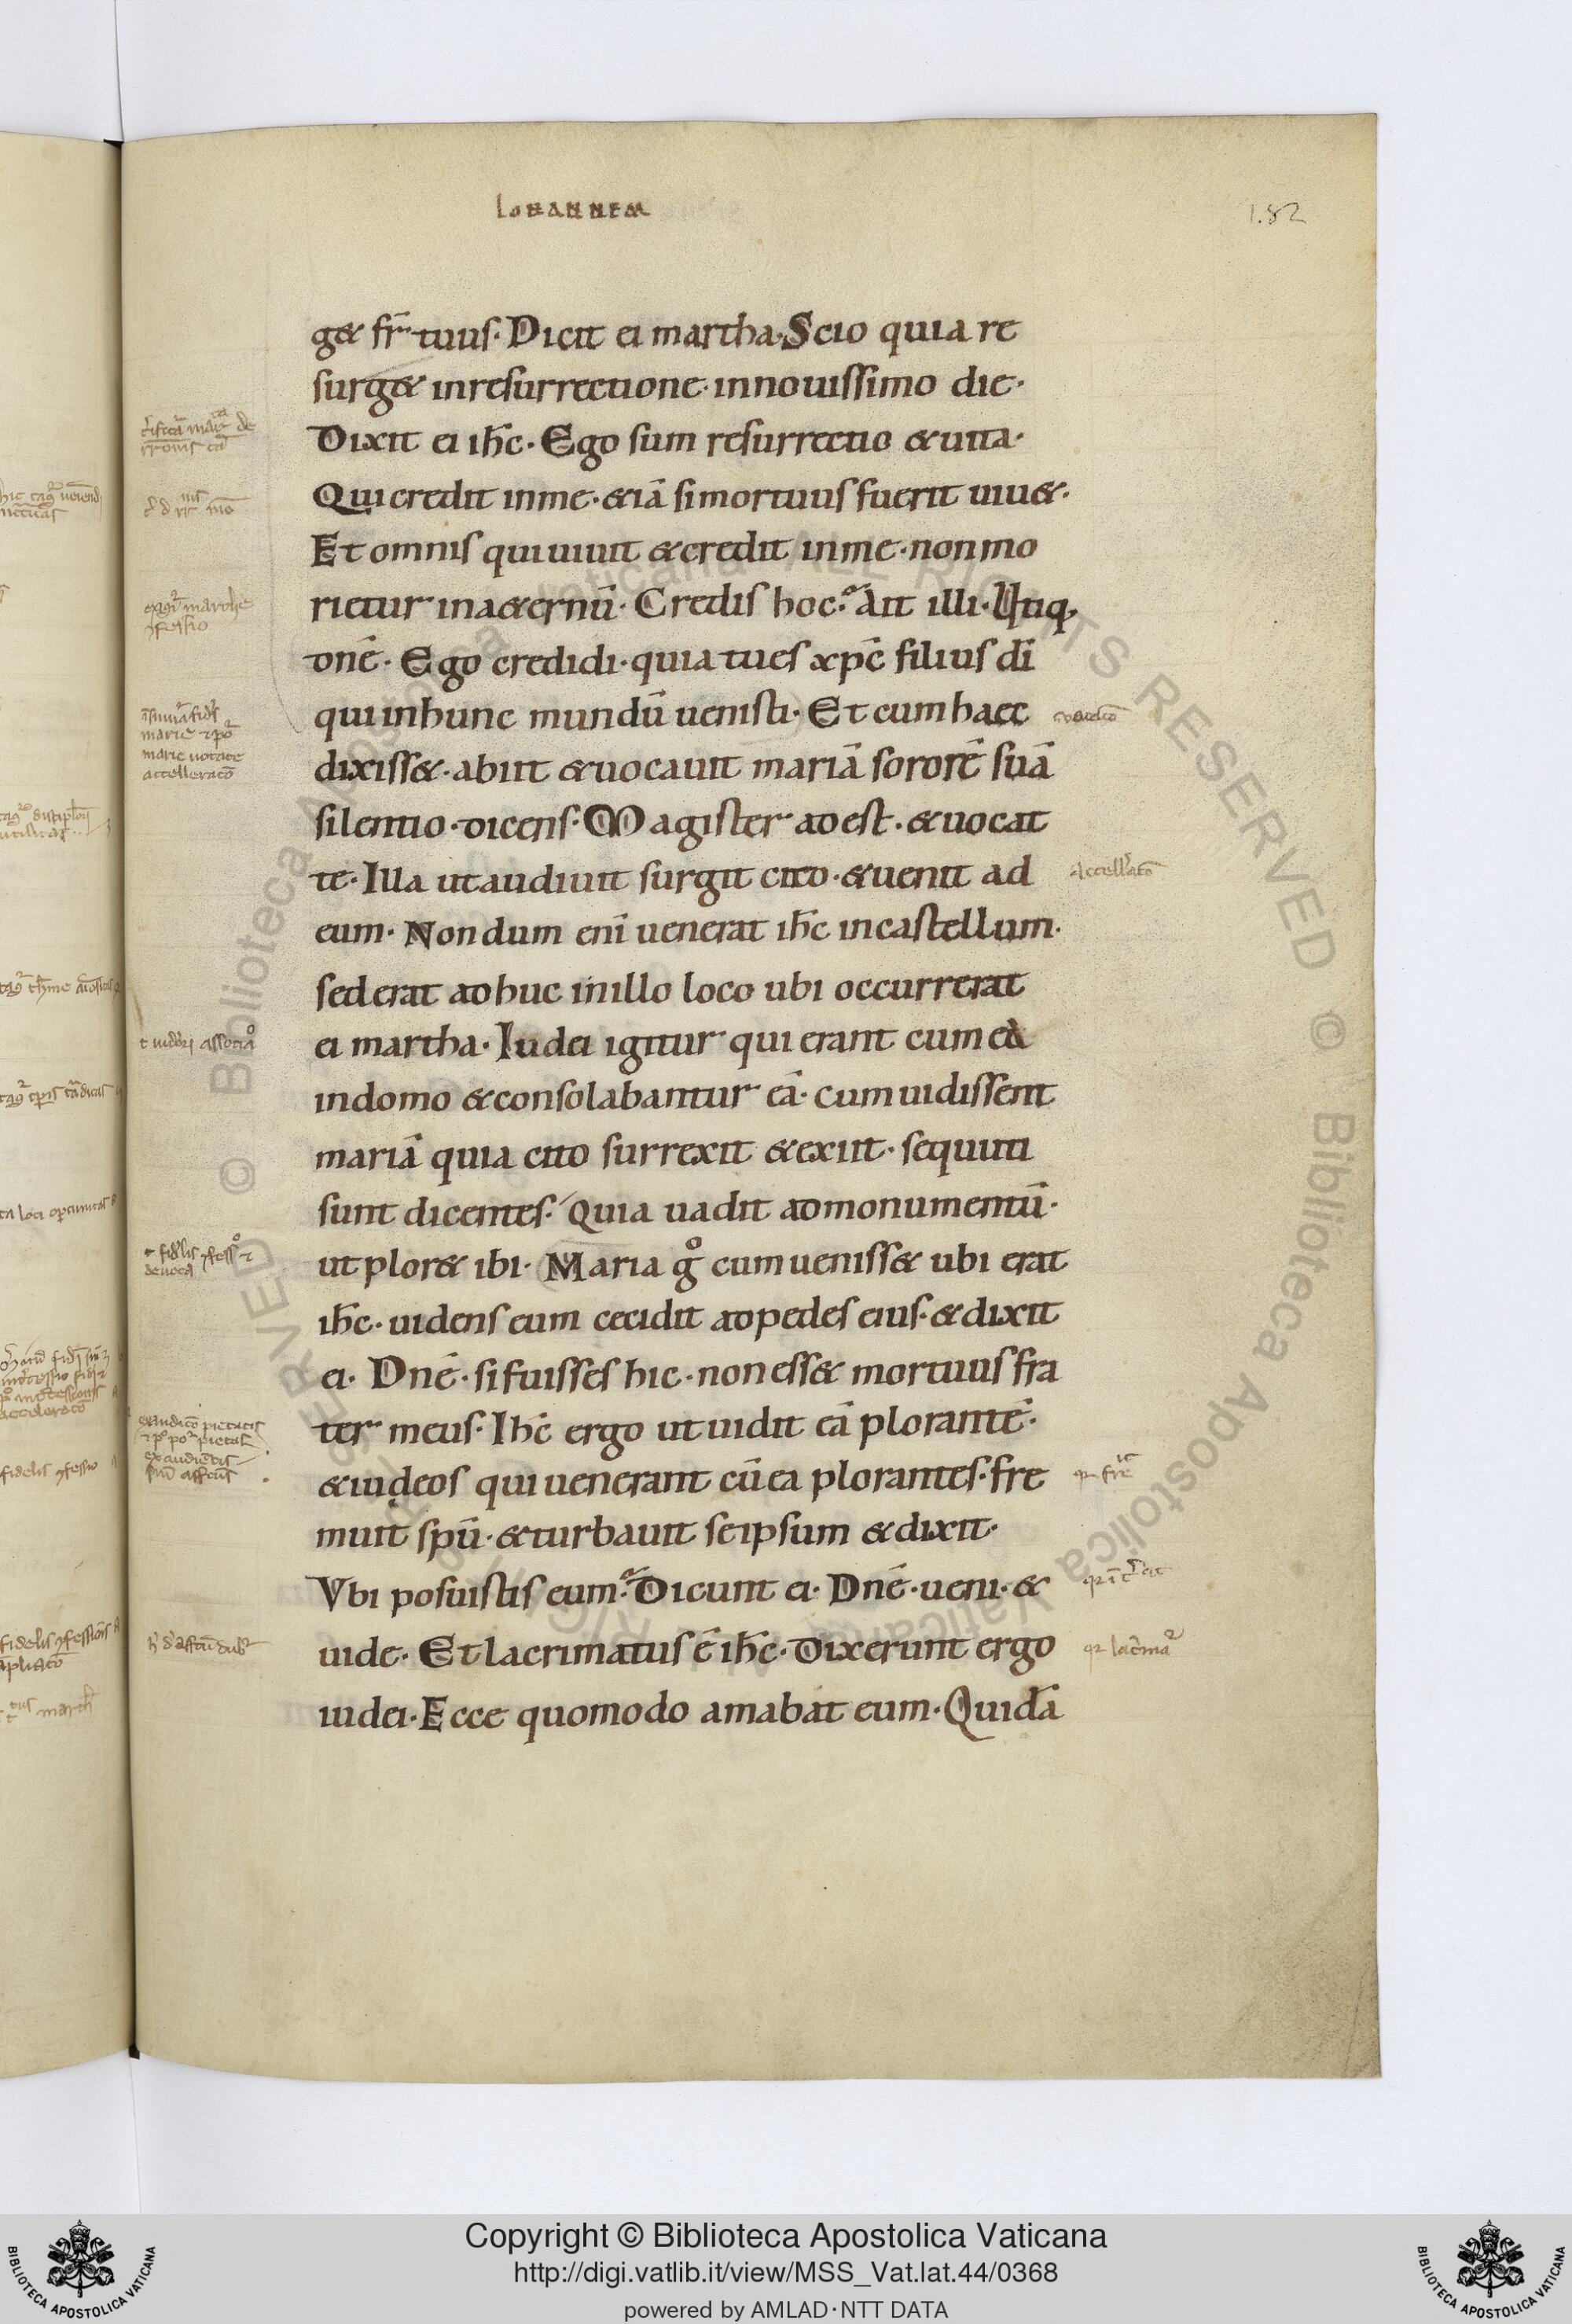 IOHANNEM
182
g& fr̄ tuus· Dicit ei martha· Scio quia re
surg& inresurrectione· innouissimo die·
Dixit ei ih̄c· Ego sum resurrectio &uita·
Qui credit inme· &iā simortuus fuerit uiu&·
Et omnis quiuiuit &credit inme· nonmo
rietur ina&ernū· Credis hoc? Ait illi· Utiq;
dn̄e· Ego credidi· quia tues xp̄c filius dī
qui inhunc mundū uenisti· Et cum haec
dixiss&· abiit &uocauit mariā sororē suā
silentio· dicens· Magister adest· &uocat
te· Illa utaudiuit surgit cito· &uenit ad
eum· Nondum enī uenerat ih̄c incastellum·
sederat adhuc inillo loco ubi occurrerat
ei martha· Iudei igitur qui erant cum ea
indomo &consolabantur eā· cum uidissent
mariā quia cito surrexit &exiit· sequuti
sunt dicentes· Quia uadit admonumentū·
ut plor& ibi· Maria gͦ cum ueniss& ubi erat
ih̄c· uidens eum cecidit adpedes eius· &dixit
ei· Dn̄e· si fuisses hic· non ess& mortuus fra
ter meus· Ih̄c ergo ut uidit eā plorantē·
&iudeos qui uenerant cū ea plorantes· fre
muit sp̄u· &turbauit seipsum &dixit·
Vbi posuistis eum? Dicunt ei· Dn̄e· ueni· &
uide· Et lacrimatus ē ih̄c· Dixerunt ergo
iudei· Ecce quomodo amabat eum· Quidā
© Biblioteca Apostolica Vaticana ALL RIGHTS RESERVED
Copyright © Biblioteca Apostolica Vaticana
http://digi.vatlib.it/view/MSS_Vat.lat.44/0368
powered by AMLAD·NTT DATA
BIBLIOTECA APOSTOLICA VATICANA
BIBLIOTECA APOSTOLICA VATICANA